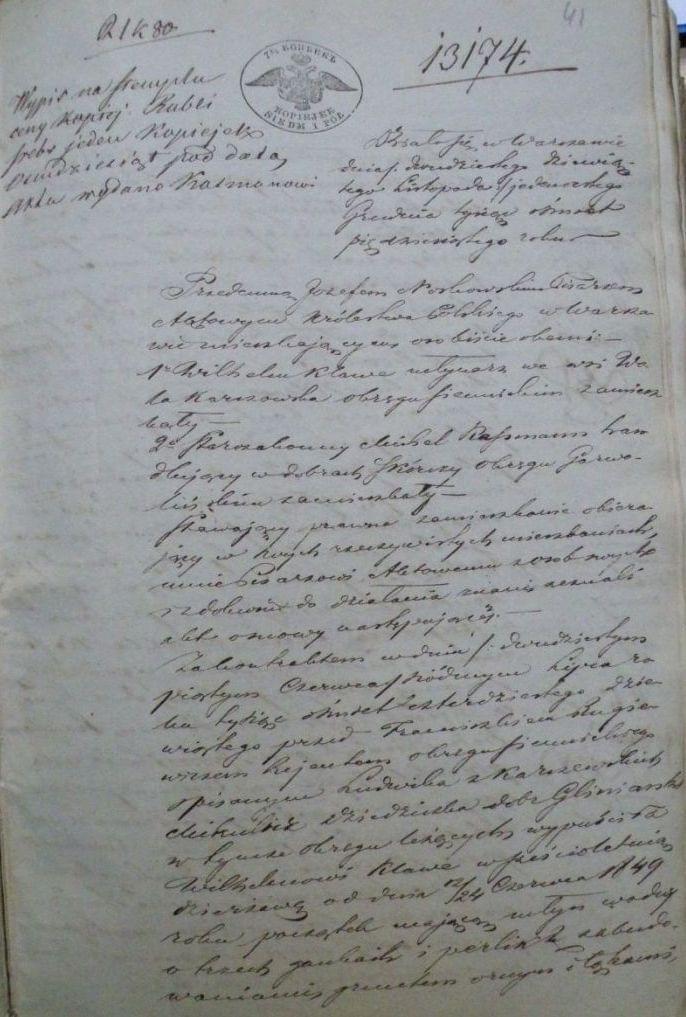 41
R 1 k 80
7½ КОПѢЕКЪ
KOPIEJEK
SIEDM I PÓŁ
13174.
Wypis na stemplu
ceny kopiej. Rubli
srebr. jeden Kopiejek
osmdziesiąt pod datą
Aktu wydano Kasmanowi
Działo się w Warszawie
dnia /: dwudziestego dziewią-
tego Listopada / jedenastego
Grudnia tysiąc ośmset
pięćdziesiątego roku
Przedemną Józefem Noskowskim Pisarzem
Aktowym Królestwa Polskiego w Warsza-
wie mieszkającym osobiście obecni:
1º Wilhelm Klawe młynarz we wsi Wo-
la Karczewska obrębu Siennickim zamiesz-
kały
2º Starozakonny Michel Kassmann han-
dlujący w dobrach Skórczy okręgu Garwo-
lińskim zamieszkały
Stawający prawne zamieszkanie obiera-
jący w swych rzeczywistych mieszkaniach,
mnie Pisarzowi Aktowemu z osób swych
i zdolności do działania znani zeznali
akt osnowy następującej.
Za kontraktem w dniu /: dwudziestym
piątym Czerwca / siódmym Lipca ro-
ku tysiąc ośmset czterdziestego dzie-
wiątego przed Franciszkiem
Rejentem okręgu Siennickiego
spisanym Ludwika z Karczewskich
dziedziczka dóbr Glinianki
w tymże okręgu leżących wypuściła
Wilhelmowi Klawe w sześcioletnią
dzierżawę od dnia 12/24 Czerwca 1849
roku początek mającą młyn wodny
o trzech gankach i perlik z zabudo-
waniami gruntem ornym i łąkami,